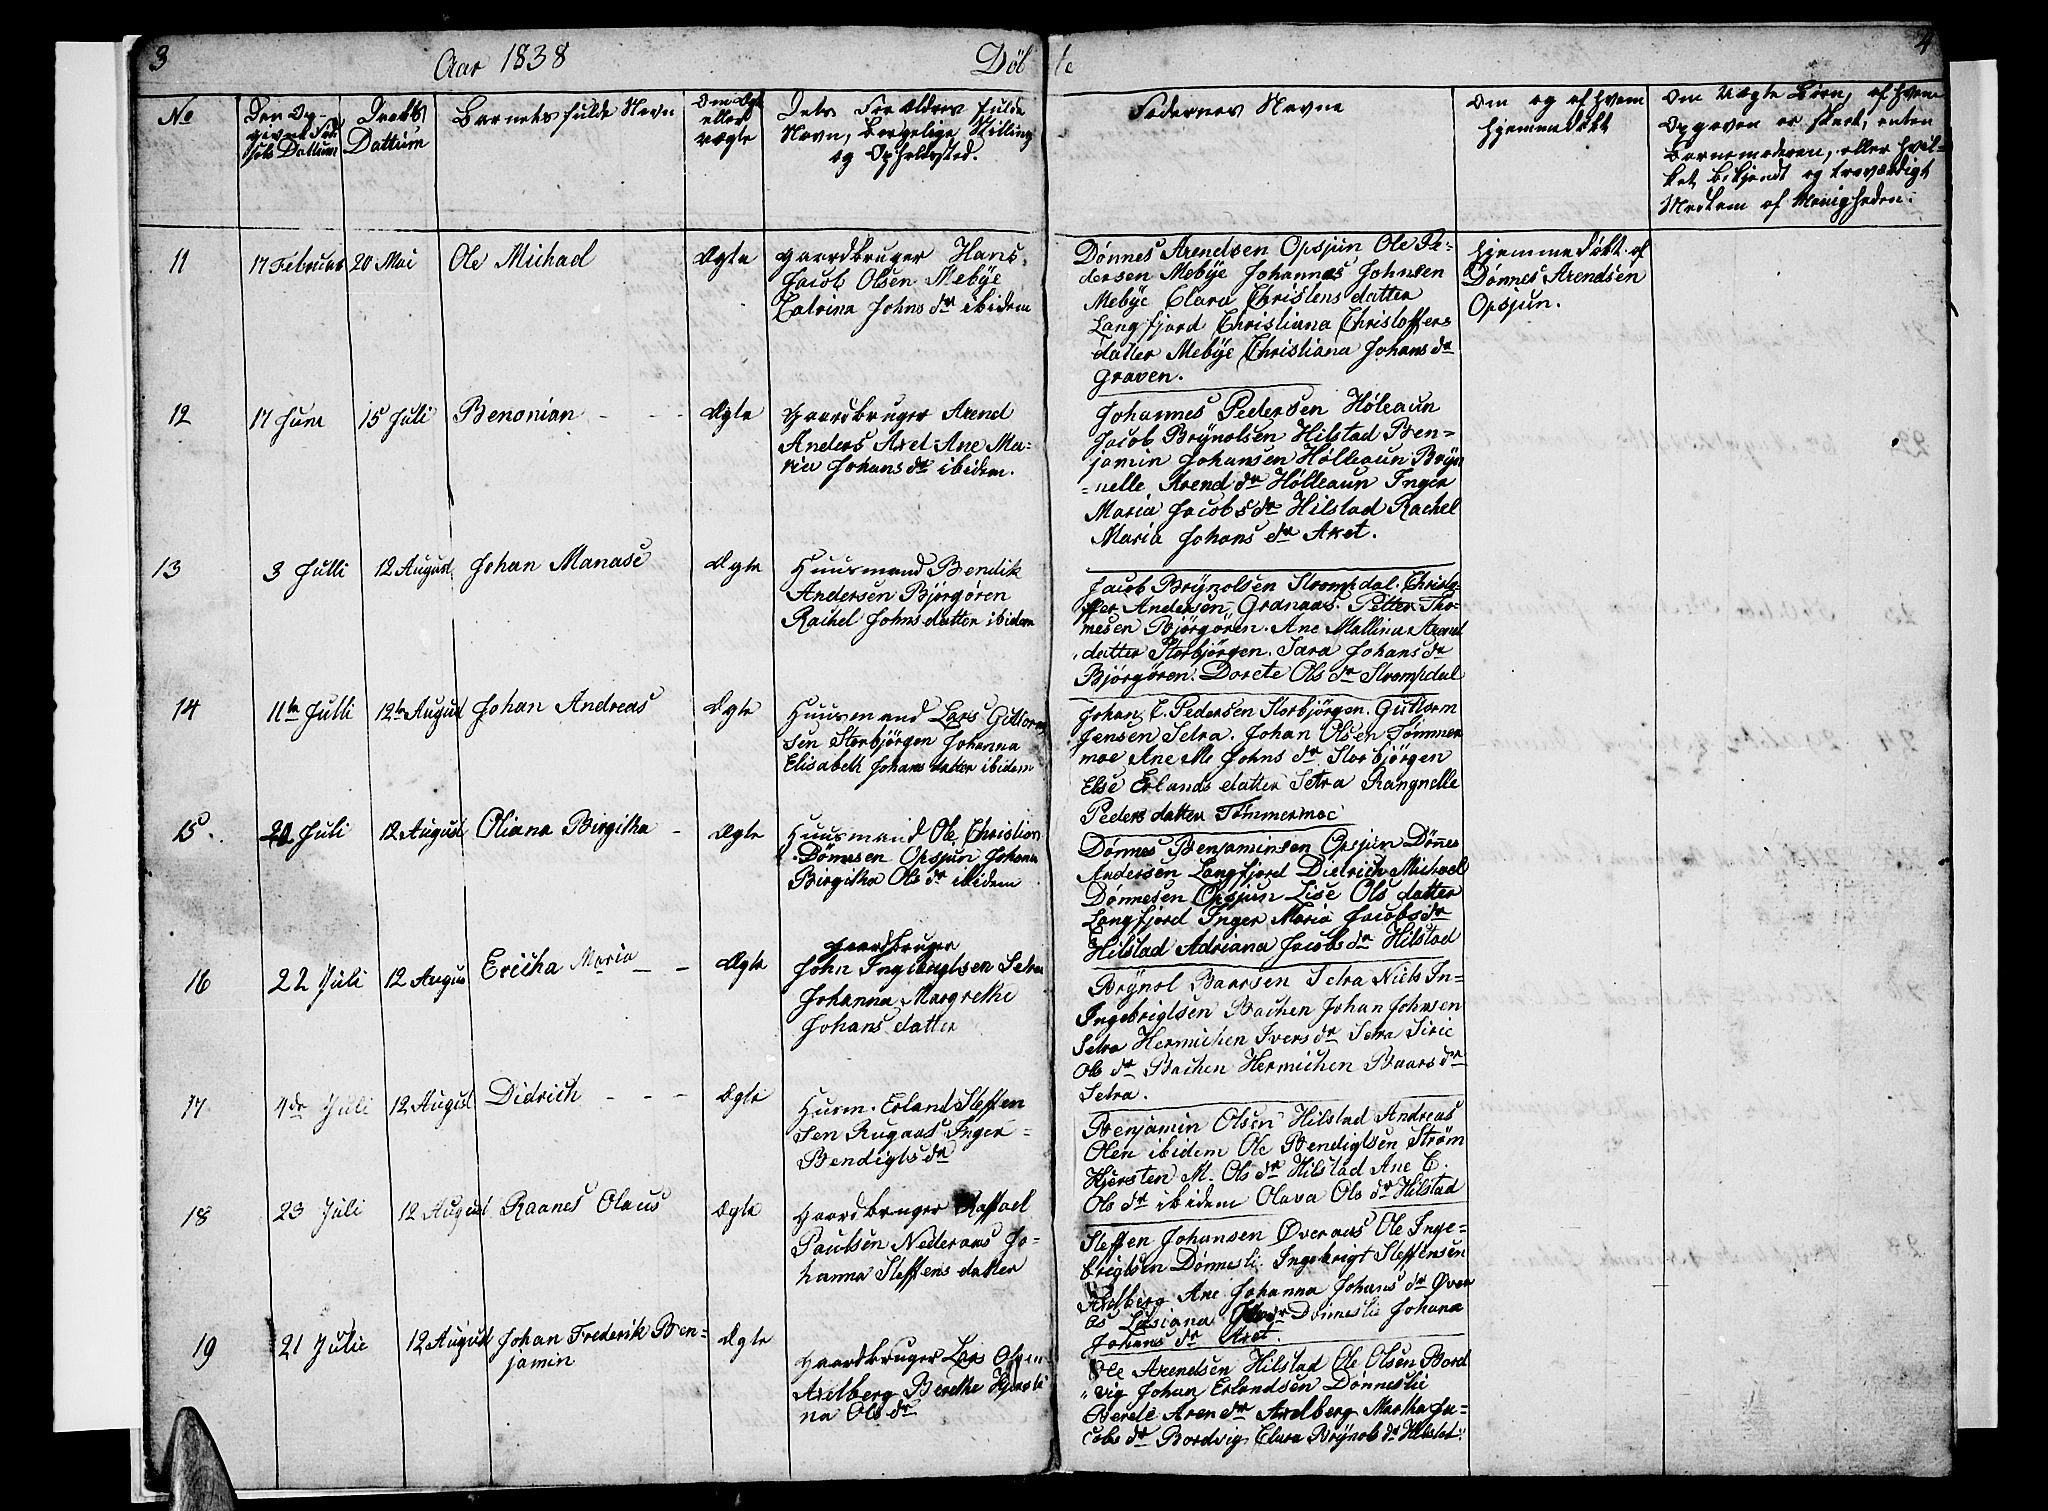 3
Aar 1838
Døb
te
4
No
Den Op-
givne Fød-
sels Dattum
Daabs
Dattum
Barnets fulde Navn
Om Ægte
eller
uægte
Dets Forældres fulde
Navn, borgelige Stilling
og Opholdssted.
Faddernes Navne
Om og af hvem
hjemmedøbt
Om Uægte Børn, af hvem
Opgaven er skeet, enten
Barnemoderen, eller hvil-
ket bekjendt og troværdigt
Medlem af Menigheden.
11
17 Februar
20 Mai
Ole Michael
Ægte
Gaardbruger Hans
Jacob Olsen Mebÿe
Catrina Johns dr ibidem
Dønnes Arendsen Opsjun Ole Pe-
dersen Mebÿe Johannes Johnsen
Mebÿe Clara Christens datter
Langfjord Christiana Christoffers
datter Mebÿe Christiana Johans dr
Graven.
hjemmedøbt af
Dønnes Arendsen
Opsjun.
12
17 Juni
15 Juli
Benonian
Ægte
Gaardbruger Arend
Anders Axel Ane Ma-
ria Johans dr ibidem.
Johannes Pedersen Høleaun
Jacob Brÿnolsen Hilstad Ben-
jamin Johansen Hølleaun Brÿn
-nelle Arend dr Hølleaun Inger
Maria Jacobs dr Hilstad Rachel
Maria Johans dr Axet.
13
3 Julli
12 August
Johan Manase
Ægte
Huusmand Bendik
Andersen Bjørgøren
Rachel Johns datter ibidem
Jacob Brÿnolsen Strompdal. Christo-
ffer Andersen Granaas. Petter Tho-
mesen Bjørgøren. Ane Mallina Arend
datter Storbjørgen. Sara Johans dr
Bjørgøren. Dorete Ols dr Strompdal
14
11te Julli
12te August
Johan Andreas
Ægte
Huusmand Lars Guttorm
sen Storbjørgen Johanna
Elisabeth Johans datter ibidem
Johan C. Pedersen Storbjørgen. Guttorm
Jensen Setra. Johan Olsen Tømmer
moe Ane M Johns dr Storbjørgen
Else Erlands datter Setra Rangnelle
Peders datter Tømmermoe
15.
20 Juli
12 August
Oliana Birgitha
Ægte
Huusmand Ole Christian
Dønnesen Opsjun Johanna
Birgitha Ols dr ibidem
Dønnes Benjaminsen Opsjun Dønnes
Andersen Langfjord Diedrich Michael
Dønnesen Opsjun Lise Ols datter
Langfjord Inger Maria Jacobs dr
Hilstad Adriana Jacobs dr Hilstad
16
22 Juli
12 Augus
Ericha Maria
Ægte
Gaardbruger
John Ingebrigtsen Setra
Johanna Margrethe
Johans datter
Brÿnol Baarsen Setra Niels In-
Ingebrigtsen Bachen Johan Johnsen
Setra Hermichen Ivers dr Setra Siric
Ols dr Bachen Hermichen Baars dr
Setra.
17
4de Juli
12 August
Didrich
Ægte
Husm. Erland Steffen
sen Rugaas Inger
Bendigts dr
Benjamin Olsen Hilstad Andreas
Olsen ibidem Ole Bendigtsen Strøm
Kjersten M. Ols dr Hilstad Ane C.
Ols dr ibidem Olava Ols dr Hilstad
18
23 Juli
12 August
Raanes Olaus
Ægte
Gaardbruger Raffael
Paulsen Nederaas Jo-
hanna Steffens datter
Steffen Johansen Øveraas Ole Inge-
brigtsen Dønneslie Ingebrigt Steffensen
Axelberg Ane Johanna Johans dr Øver
as Lusiana dr Dønneslie Johana
Johans dr Axet.
19
21 Julie
12 August
Johan Frederik Ben-
jamin
Ægte
Gaardbruger Lars Olsen
Axelberg Berethe Kjersti
na Ols dr
Ole Arendsen Hilstad Ole Olsen Bord
vig Johan Erlandsen Dønneslie
Berete Aren dr Axelberg Martha Ja-
cobs dr Bordvig Clara Brÿnols dr Hilstad.